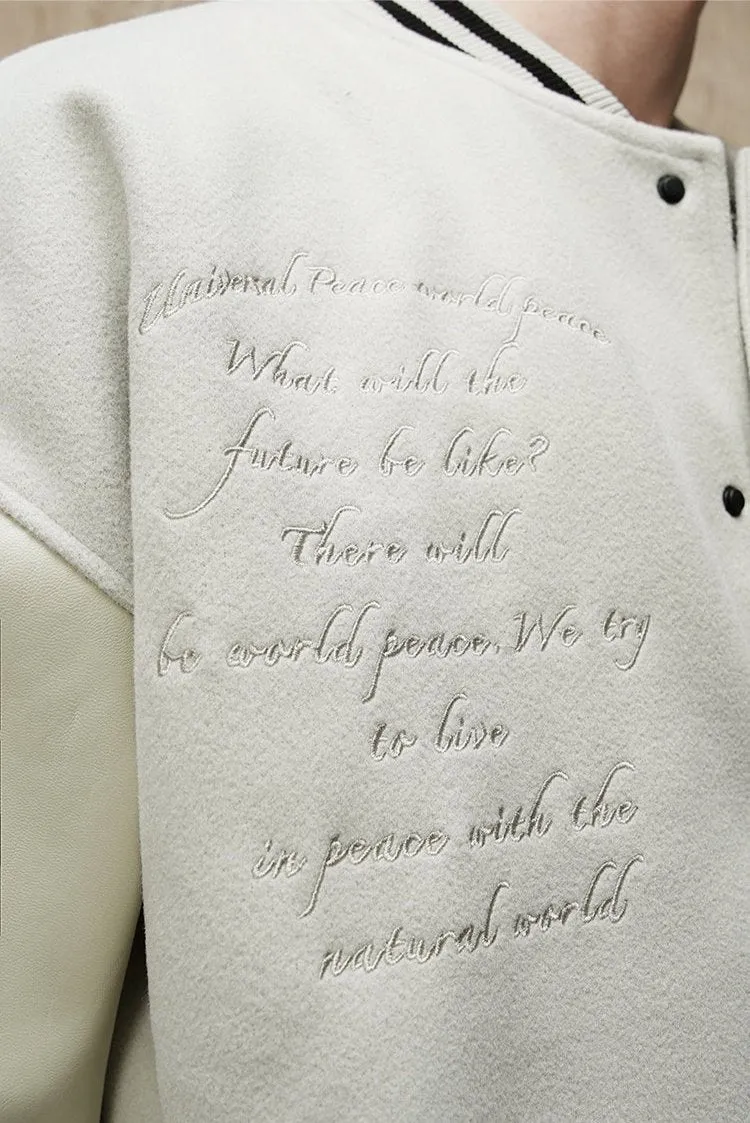 Universal Peace world peace
What will the
future be like?
There will
be world peace. We try
to live
in peace with the
natural world